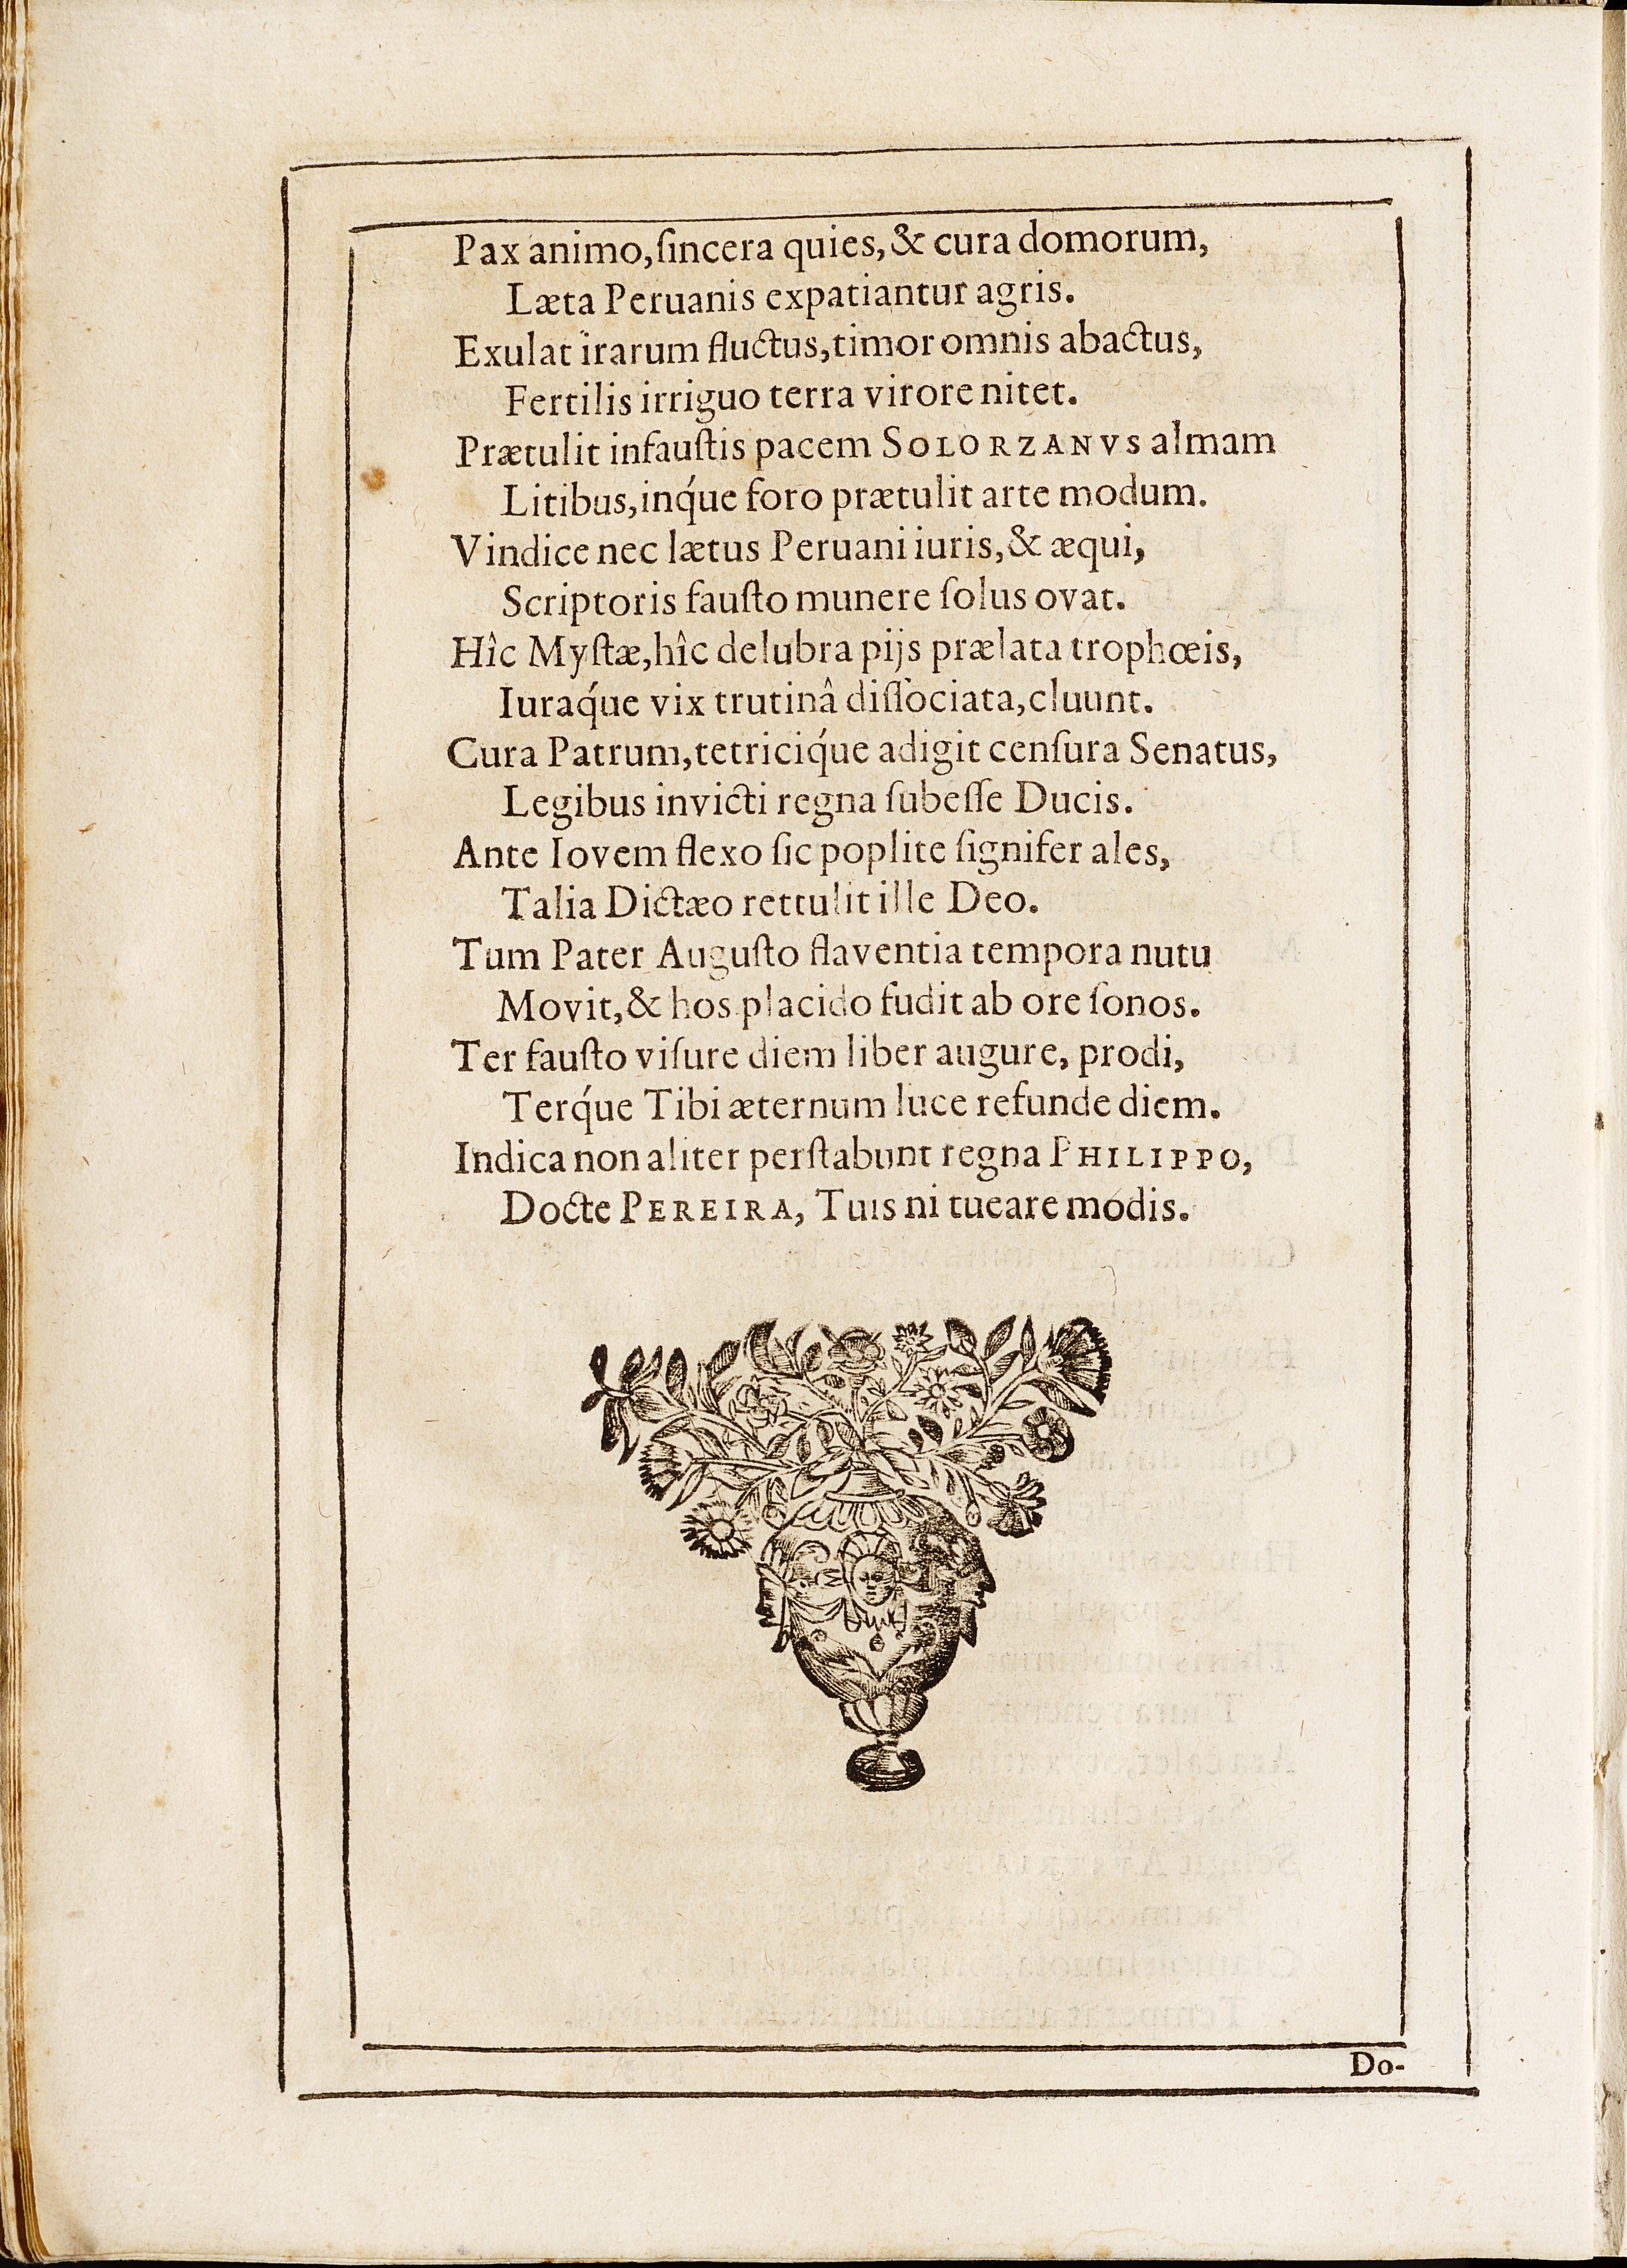 Pax animo, ſincera quies, & cura domorum,
Læta Peruanis expatiantur agris.
Exulat irarum fluctus, timor omnis abactus,
Fertilis irriguo terra virore nitet.
Prætulit infauſtis pacem SOLORZANVS almam
Litibus, inq́ue foro prætulit arte modum.
Vindice nec lætus Peruani iuris, & æqui,
Scriptoris fauſto munere ſolus ovat.
Hîc Myſtæ, hîc delubra pijs prælata trophœis,
Iuraq́ue vix trutinâ diſſociata, cluunt.
Cura Patrum, tetriciq́ue adigit cenſura Senatus,
Legibus invicti regna ſubeſſe Ducis.
Ante Iovem flexo ſic poplite ſignifer ales,
Talia Dictæo rettulit ille Deo.
Tum Pater Auguſto flaventia tempora nutu
Movit, & hos placido fudit ab ore ſonos.
Ter fauſto viſure diem liber augure, prodi,
Terq́ue Tibi æternum luce refunde diem.
Indica non aliter perſtabunt regna PHILIPPO,
Docte PEREIRA, Tuis ni tueare modis.
Do-